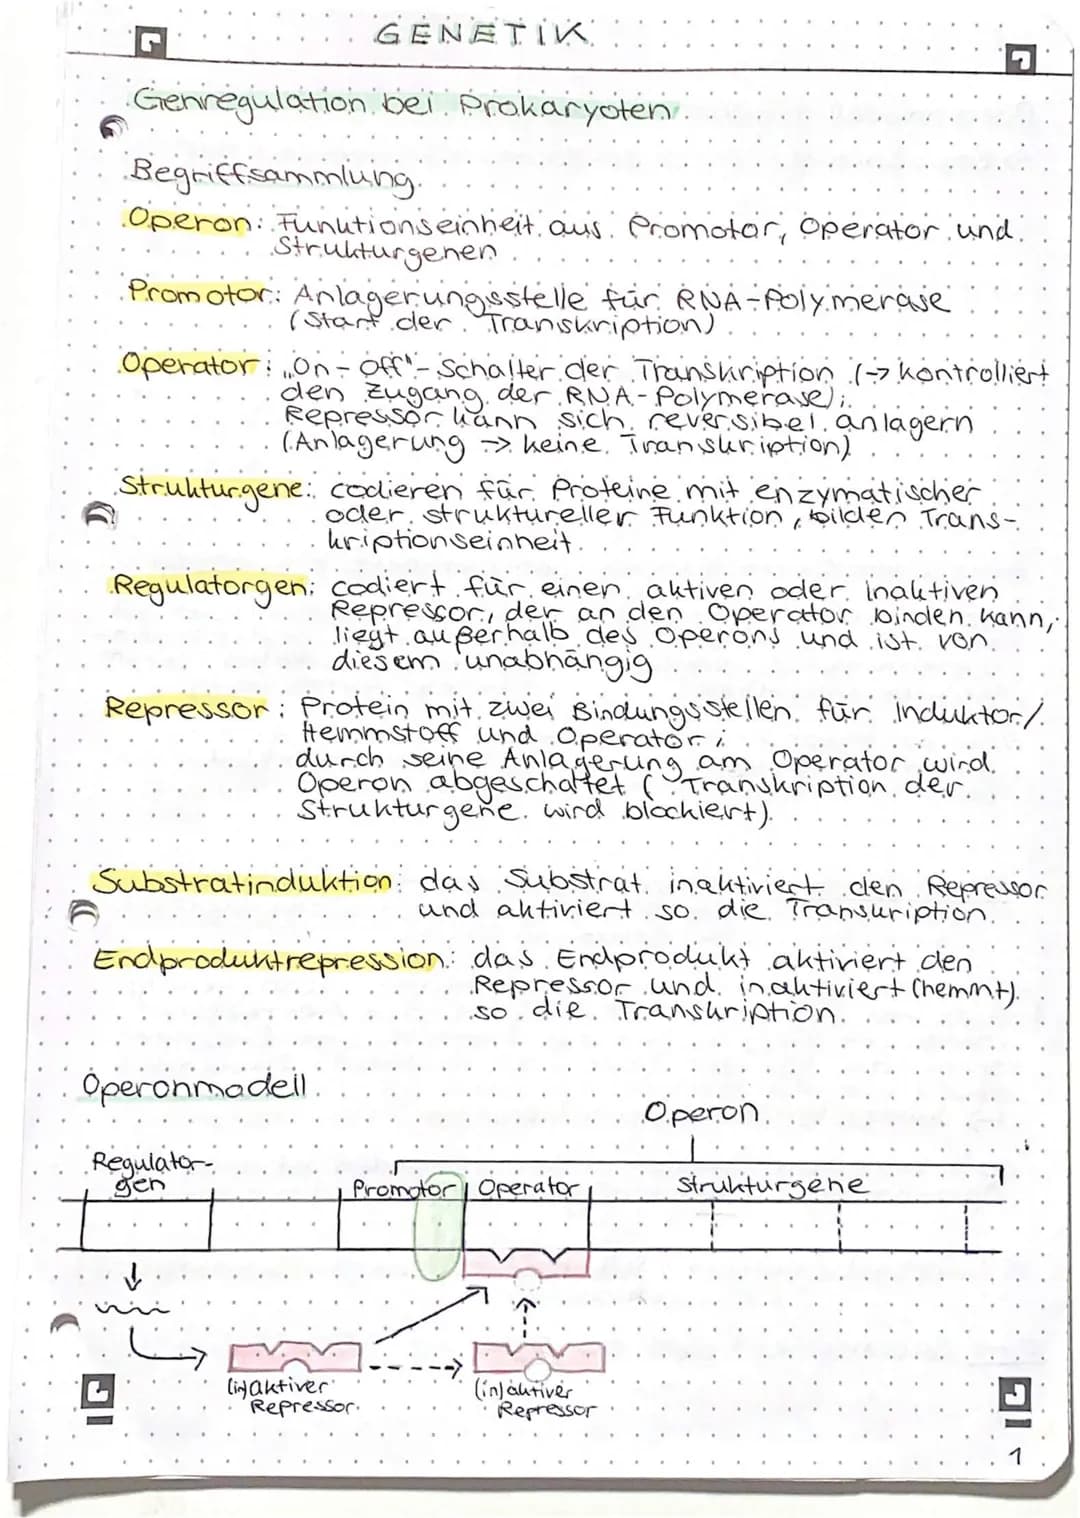 GENETIK
Genregulation bei Prokaryoten
Begriffsammlung
Operon: Funktionseinheit aus Promotor, Operator und
Strukturgenen
Promotor: Anlagerungsstelle für RNA-Polymerase
(Start der Transkription)
Operator: „On-Off"-Schalter der Transkription (→ kontrolliert
den Zugang der RNA-Polymerase);
Repressor kann sich reversibel anlagern
(Anlagerung → keine Transkription)
Strukturgene: codieren für Proteine mit enzymatischer
oder struktureller Funktion, bilden Trans-
kriptionseinheit
Regulatorgen: codiert für einen aktiven oder inaktiven
Repressor, der an den Operator binden kann,
liegt außerhalb des Operons und ist von
diesem unabhängig
Repressor: Protein mit zwei Bindungsstellen für Induktor/
Hemmstoff und Operator;
durch seine Anlagerung am Operator wird
Operon abgeschaltet (Transkription der
Strukturgene wird blockiert)
Substratinduktion: das Substrat inaktiviert den Repressor
und aktiviert so die Transkription
Endproduktrepression: das Endprodukt aktiviert den
Repressor und inaktiviert (hemmt)
so die Transkription
Operonmodell
Operon
Regulator-
gen
Promotor Operator Strukturgene
(in)aktiver
Repressor
(in)aktiver
Repressor
1